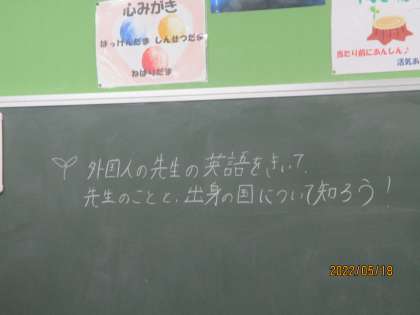 心みがき
はっけんだま しんせつだま
ねばりだま
当たり前にあんしん♪
外国人の先生の英語をきいて、
先生のことと、出身の国について知ろう！
2022/05/18